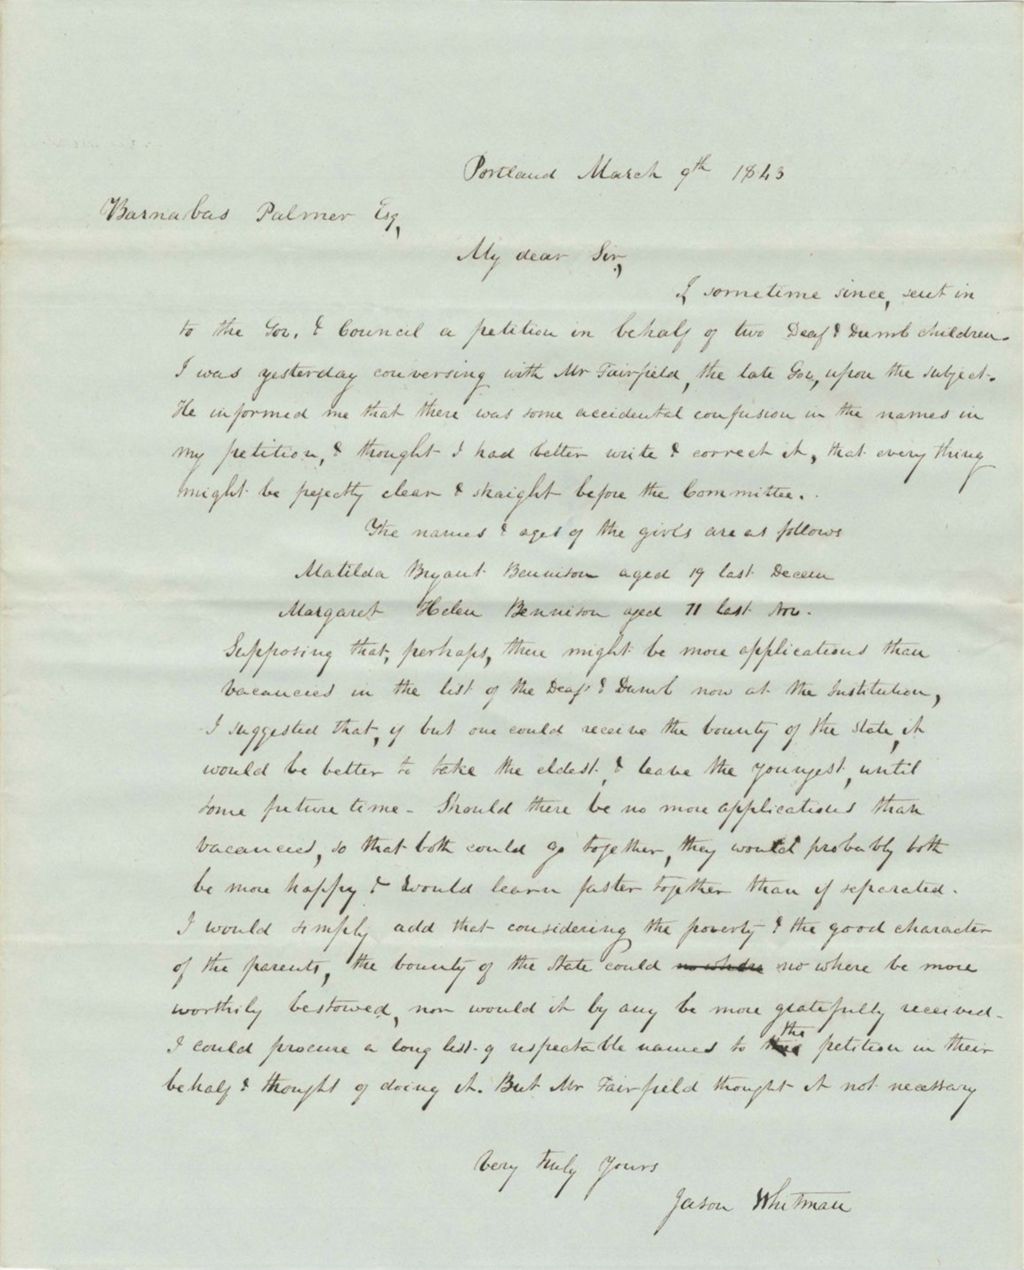 Portland March 9th 1843
Barnabas Palmer Esq,
My dear Sir,
I sometime since, sent in
to the Gov. & Council a petition in behalf of two Deaf & Dumb children.
I was yesterday conversing with Mr Fairfield, the late Gov, upon the subject.
He informed me that there was some accidental confusion in the names in
my petition, & thought I had better write & correct it, that every thing
might be perfectly clear & straight before the Committee.
The names & ages of the girls are as follows
Matilda Bryant Bennison aged 19 last Decem
Margaret Helen Bennison aged 11 last Nov.
Supposing that, perhaps, there might be more applications than
vacancies in the list of the Deaf & Dumb now at the Institution,
I suggested that, if but one could receive the bounty of the State, it
would be better to take the eldest, & leave the youngest, until
some future time - Should there be no more applications than
vacancies, so that both could go together, they would probably both
be more happy & would learn faster together than if separated.
I would simply add that considering the poverty & the good character
of the parents, the bounty of the State could no where no where be more
worthily bestowed, nor would it by any be more gratefully received.
I could procure a long list of respectable names to the petition in their
behalf & thought of doing it. But Mr Fairfield thought it not necessary
Very truly Yours
Jason Whitman